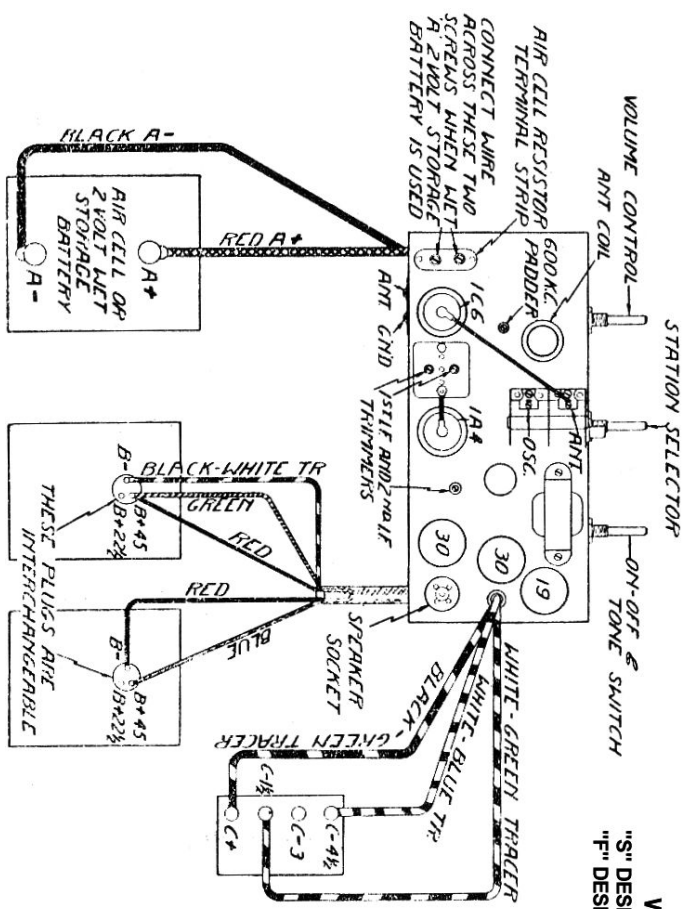 VOLUME CONTROL
STATION SELECTOR
ON-OFF &
TONE SWITCH
ANT COIL
600 KC.
PADDER
ANT
OSC.
AIR CELL RESISTOR
TERMINAL STRIP
CONNECT WIRE
ACROSS THESE TWO
SCREWS WHEN WET
A 2 VOLT STORAGE
BATTERY IS USED
1C6
1A4
30
30
19
ANT GND
1ST IF AND 2ND IF
TRIMMERS
SPEAKER
SOCKET
BLACK A-
RED A+
A+
AIR CELL OR
2 VOLT WET
STORAGE
BATTERY
A-
BLACK-WHITE TR
GREEN
RED
RED
BLUE
B-
B+45
B+22½
B-
B+45
B+22½
THESE PLUGS ARE
INTERCHANGEABLE
WHITE-GREEN TRACER
WHITE-BLUE TR
BLACK-GREEN TRACER
C-4½
C-3
C-1½
C+
"S" DESI
"F" DESI